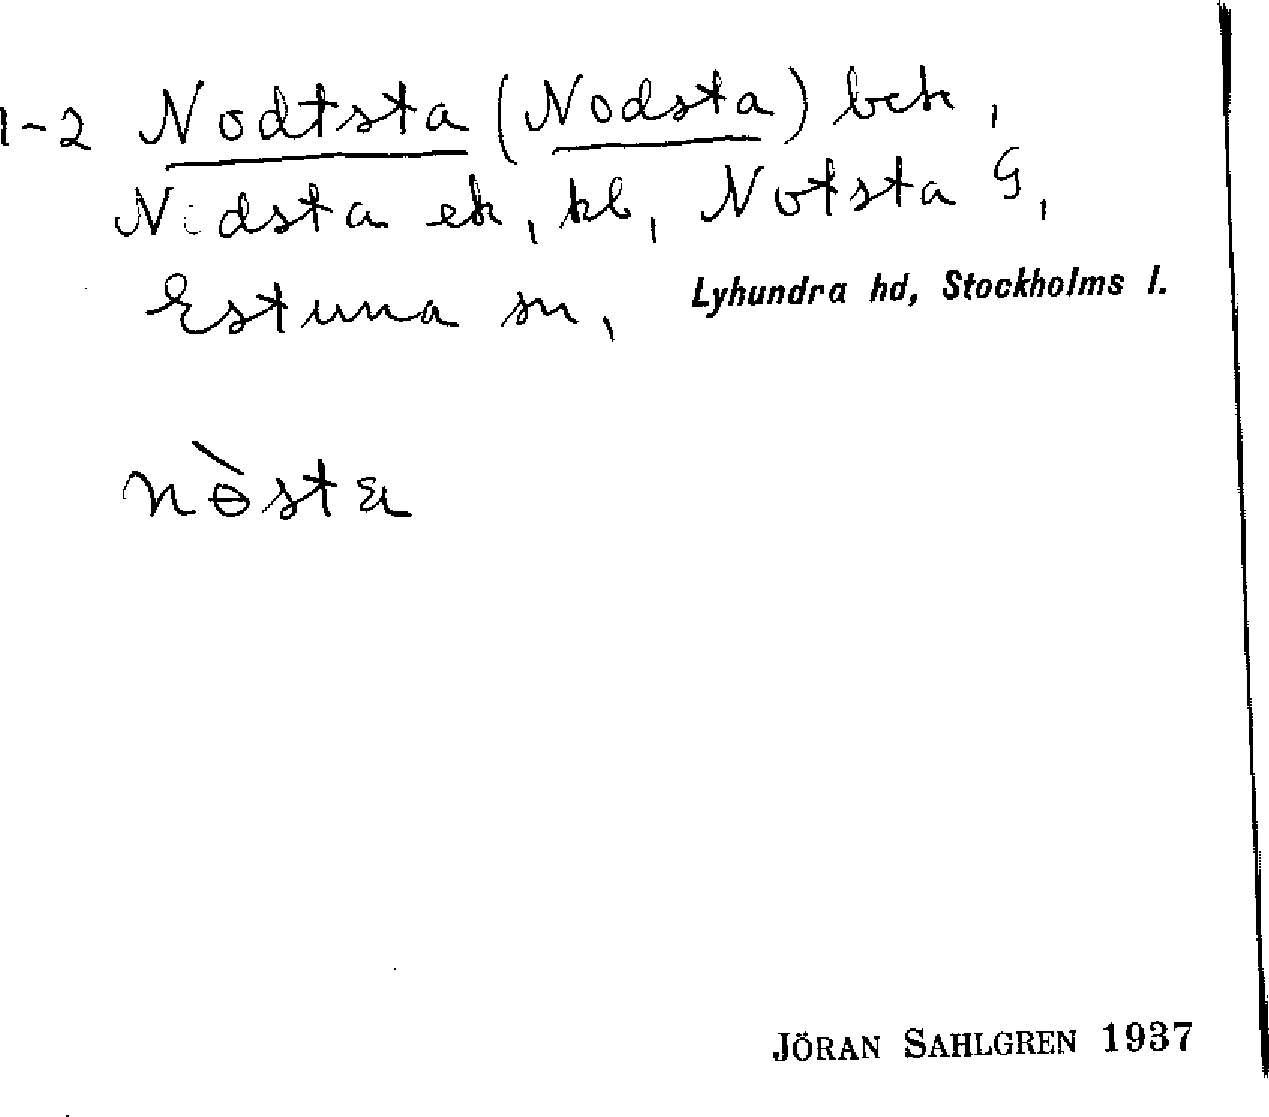 1-2 Nodtsta (Nodsta) bek,
Nodsta ek, kb, Notsta G,
Estuna sn, Lyhundra hd, Stockholms l.
nòsta
JÖRAN SAHLGREN 1937